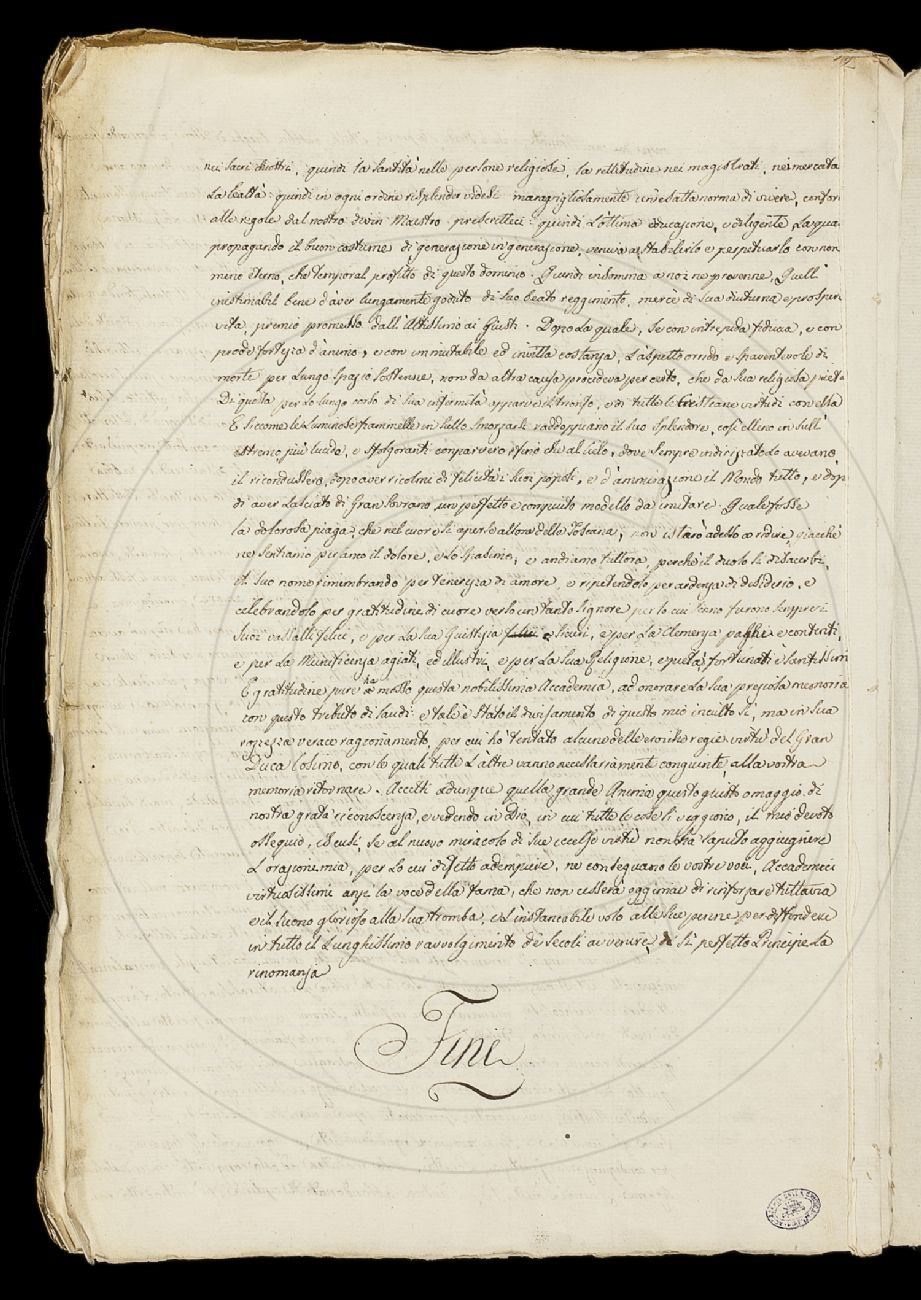 nei sacri chiostri, quindi la santità nelle persone religiose, la rettitudine nei magistrati, nei mercata
la lealtà: quindi in ogni ordine risplender videsi maravigliosamente un'esatta norma di vivere, confor
alle regole dal nostro divin Maestro prescritteci: quindi l'ottima educazione, e diligente la qua
propagando il buon costume di generazione in generazione, veniva a stabilirlo e perpetuarlo con non
meno eterno, che temporal profitto di questo dominio. Quindi in somma a noi ne provenne, quell'
inestimabil bene d'aver lungamente goduto di suo beato reggimento, mercè di sua diuturna e prosper
vita, premio promesso dall'Altissimo ai Giusti. Dopo la quale, se con intrepida fiducia, e con
prode fortezza d'animo, e con immutabile ed invitta costanza, l'aspetto orrido e spaventevole di
morte per lungo spazio sostenne, non da altra causa procedeva per certo, che da sua religiosa pietà
Di questa per lo lungo corso di sua infermità apparve il trionfo, e di tutte le Cristiane virtudi con essa
E siccome le luminose fiammelle in sullo smorzarsi raddoppiano il suo splendore, così elleno in sull'
estremo, più lucide, e sfolgoranti comparvero sfino che al Cielo, dove sempre indirizzato lo avevano
il ricondussero, dopo aver ricolmi di felicità i suoi popoli, e d'ammirazione il Mondo tutto, e dop
di aver lasciato di Gran Sovrano un perfetto e compiuto modello da imitare. Quale fosse
la dolorosa piaga, che nel cuore si aperse allora della Toscana, non istarò adesso a ridire, giacchè
ne sentiamo per anco il dolore, e lo spasimo, e andiamo tuttora, perchè il duolo si disacerbi,
il suo nome rimembrando per tenerezza di amore, e ripetendolo per ardenza di desiderio, e
celebrandolo per gratitudine di cuore verso un tanto Signore per lo cui senno furono sempre i
suoi vassalli felici, e per la sua Giustizia felici e sicuri, e per la Clemenza paghi e contenti,
e per la Munificenza agiati, ed illustri, e per la sua Religione, e pietà fortunati e santissimi
E gratitudine pure ha mosso questa nobilissima Accademia, ad onorare la sua preziosa memoria
con questo tributo di laudi: e tale è stato il divisamento di questo mio inculto sì, ma in sua
rozzezza verace ragionamento, per cui ho tentato alcune delle eroiche regie virtù del Gran
Duca Cosimo, con le quali tutte l'altre vanno necessariamente congiunte, alla vostra
memoria ritornare. Accetti adunque quella grande Anima questo giusto omaggio di
nostra grata riconoscenza, e vedendo in Dio, in cui tutte le cose si veggiono, il mio devoto
ossequio, iscusi, se al nuovo miracolo di sue eccelse virtù non ha saputo aggiugnere
l'orazione mia, per lo cui difetto adempiere, ne conseguano le vostre voci, Accademici
virtuosissimi anzi la voce della fama, che non cesserà oggimai di rinforzare tuttavia
e il suono glorioso alla sua tromba, e l'instancabile volo alle sue penne per diffondere
in tutto il lunghissimo ravvolgimento de' secoli avvenire, di sì perfetto Principe la
rinomanza
Fine